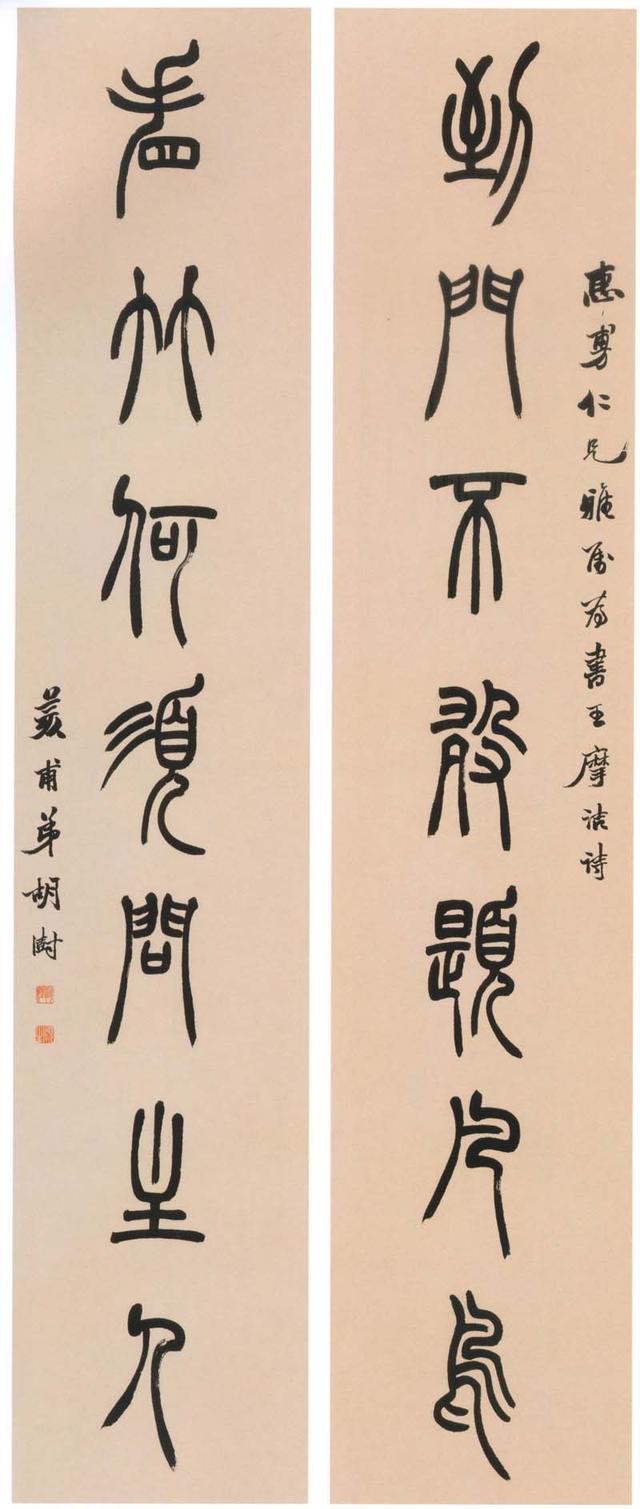 惠仁兄雅屬為書王摩詰詩
到門不敢題凡鳥
看竹何須問主人
荄甫弟胡澍